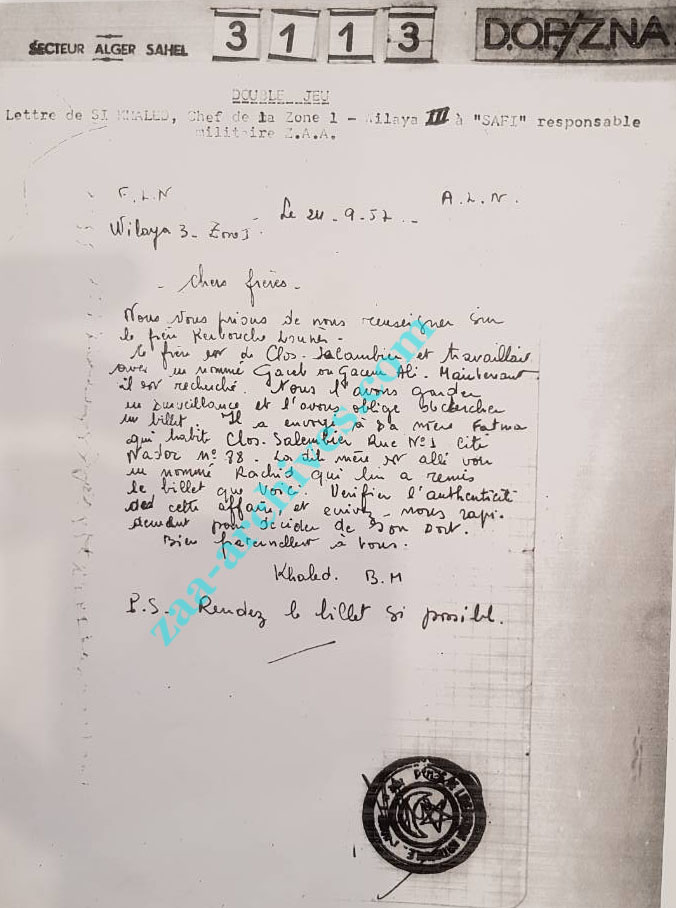 SECTEUR ALGER SAHEL
3 1 1 3
D.OP/Z.N.A
DOUBLE JEU
Lettre de SI KHALED, Chef de la Zone 1 - Wilaya III à "SAFI" responsable
militaire Z.A.A.
F.L.N A.L.N.
Le 24.9.57
Wilaya 3 - Zone 1
Chers frères
Nous vous prions de nous renseigner sur
le frère Kerbouche
le frère est de Clos-Salambier et travaillait
avec un nommé Gaceb ou Gacem Ali. Maintenant
il est recherché. Nous l'avons garder
en surveillance et l'avons oblige
un billet. Il a envoyé à sa mère Fatma
qui habite Clos-Salembier Rue N°1 Cité
Nador n° 88. La dit mère est allé voir
un nommé Rachid qui lui a remis
le billet que voici. Verifier l'authenticité
cette affaire, et ecrivez-nous rapi-
dement pour décider de son sort.
Bien fraternellent à vous.
Khaled. B.M
P.S. Rendez le billet si possible.
zaa-archives.com